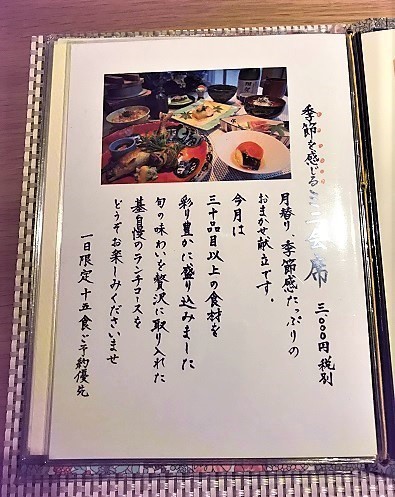 季節を感じるミニ会席
三、〇〇〇円 税別
月替り、季節感たっぷりの
おまかせ献立です。
今月は
三十品目以上の食材を
彩り豊かに盛り込みました
旬の味わいを贅沢に取り入れた
基自慢のランチコースを
どうぞお楽しみくださいませ
一日限定十五食ご予約優先